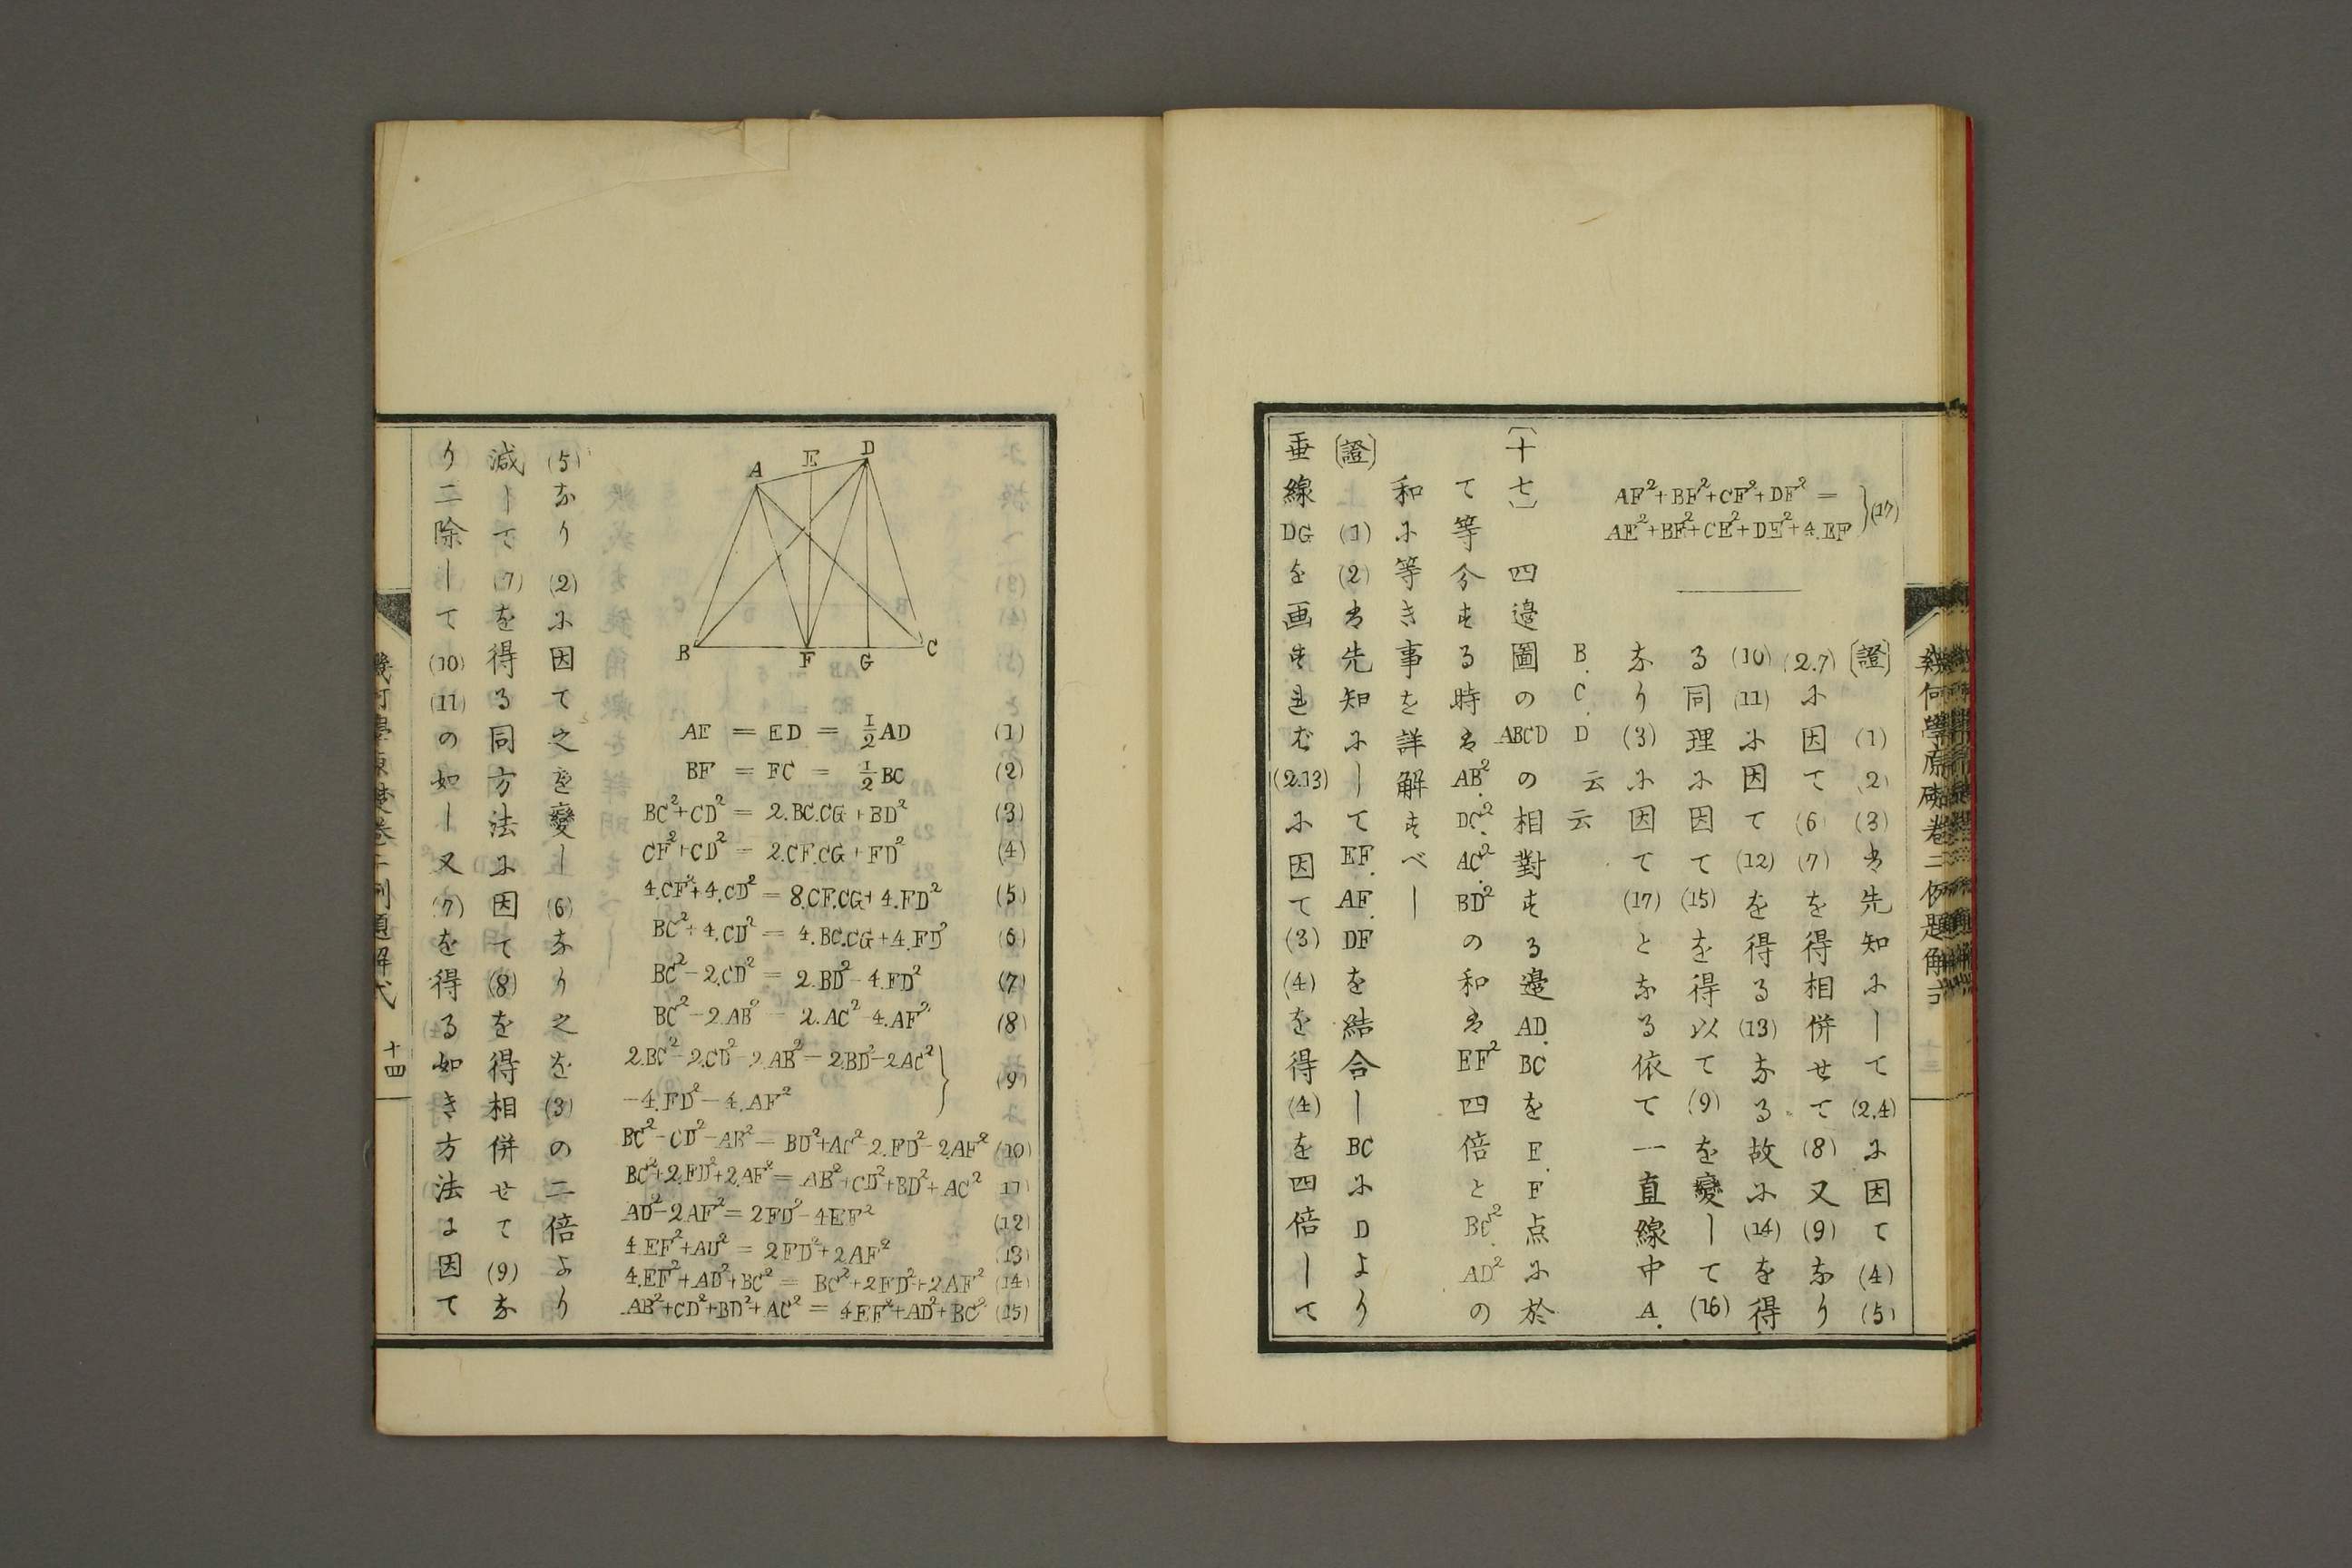 幾何學原礎卷二例題解式
AF²+BF²+CF²+DF² =
AE²+BE²+CE²+DE²+4.EF } (17)
〔證〕 (1) (2) (3) は先知にして (2.4) に因て (4) (5)
(2.7) に因て (6) (7) を得相併せて (8) 又 (9) なり
(10) (11) に因て (12) を得る (13) なる故に (14) を得
る同理に因て (15) を得以て (9) を變して (16)
なり (3) に因て (17) となる依て一直線中 A.
B. C. D 云云
〔十七〕 四邉圖の ABCD の相對する邉 AD. BC を E. F 点に於
て等分する時は AB². DC². AC². BD² の和は EF² 四倍と BC². AD² の
和に等き事を詳解すべし
〔證〕 (1) (2) は先知にして EF. AF. DF を結合し BC に D より
垂線 DG を画すれむ (2.13) に因て (3) (4) を得 (4) を四倍して
A E D
B F G C
AE = ED = 1/2 AD (1)
BF = FC = 1/2 BC (2)
BC²+CD² = 2.BC.CG+BD² (3)
CF²+CD² = 2.CF.CG+FD² (4)
4.CF²+4.CD² = 8.CF.CG+4.FD² (5)
BC²+4.CD² = 4.BC.CG+4.FD² (6)
BC²-2.CD² = 2.BD²-4.FD² (7)
BC²-2.AB² = 2.AC²-4.AF² (8)
2.BC²-2.CD²-2.AB² = 2.BD²-2AC²
-4.FD²-4.AF² } (9)
BC²-CD²-AB² = BD²+AC²-2.FD²-2.AF² (10)
BC²+2.FD²+2.AF² = AB²+CD²+BD²+AC² (11)
AD²-2AF² = 2FD²-4EF² (12)
4.EF²+AD² = 2FD²+2AF² (13)
4.EF²+AD²+BC² = BC²+2FD²+2AF² (14)
AB²+CD²+BD²+AC² = 4EF²+AD²+BC² (15)
(5) なり (2) に因て之を變し (6) なり之を (3) の二倍より
減して (7) を得る同方法に因て (8) を得相併せて (9) な
り二除して (10) (11) の如し又 (7) を得る如き方法に因て
幾何學原礎卷二例題解式 十四